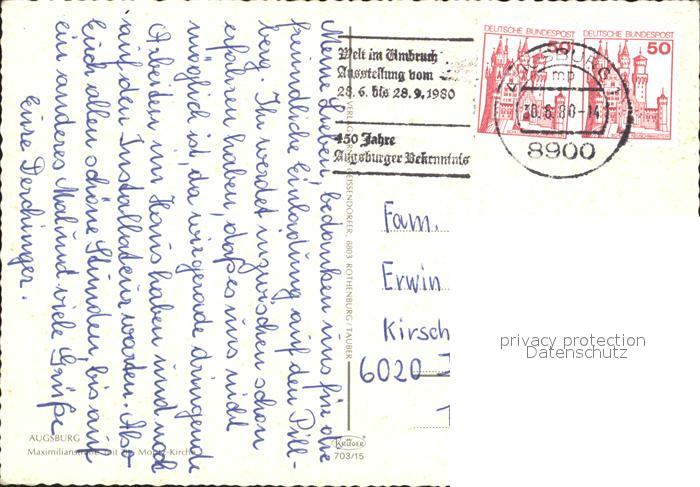 Meine Lieben, bedanken uns für die
freundliche Einladung auf den Pill-
berg. Ihr werdet inzwischen schon
erfahren haben, daß es uns nicht
möglich ist da wir gerade dringende
Arbeiten im Haus haben und noch
auf den Installateur warten. Also
Euch allen schöne Stunden, bis auf
ein anderes Mal und viele Grüße
Eure Derchinger.
AUGSBURG
Maximilianstraße mit St. Moritz-Kirche
VERLAG GEISSENDÖRFER, 8803 ROTHENBURG/TAUBER
KRÜGER
703/15
Welt im Umbruch
Ausstellung vom
28. 6. bis 28. 9. 1980
450 Jahre
Augsburger Bekenntnis
DEUTSCHE BUNDESPOST
50
DEUTSCHE BUNDESPOST
50
AUGSBURG 1
mp
8900
Fam.
Erwin
Kirsch
6020
privacy protection
Datenschutz